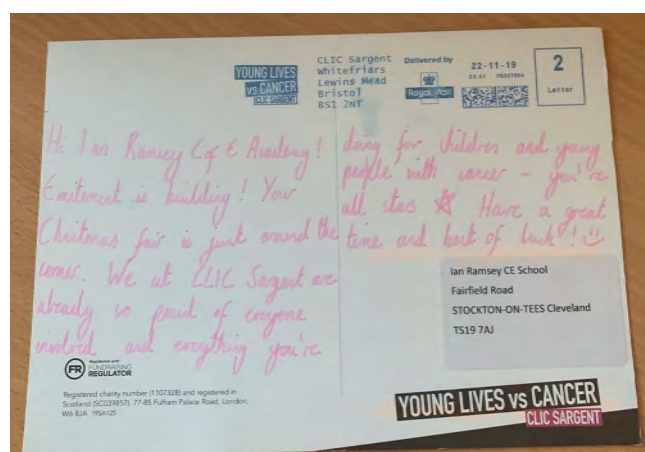 YOUNG LIVES
vs CANCER
CLIC SARGENT
CLIC Sargent
Whitefriars
Lewins Mead
Bristol
BS1 2NT
Delivered by
Royal Mail
22-11-19
2
Letter
Hi Ian Ramsey C of E Academy!
Excitement is building! Your
Christmas fair is just around the
corner. We at CLIC Sargent are
already so proud of everyone
involved and everything you're
doing for children and young
people with cancer - you're
all stars ☆ Have a great
time and best of luck! ☺
Ian Ramsey CE School
Fairfield Road
STOCKTON-ON-TEES Cleveland
TS19 7AJ
FR
Registered with
FUNDRAISING
REGULATOR
Registered charity number (1107328) and registered in
Scotland (SC039857). 77-85 Fulham Palace Road, London,
W6 8JA. 19SA125
YOUNG LIVES vs CANCER
CLIC SARGENT